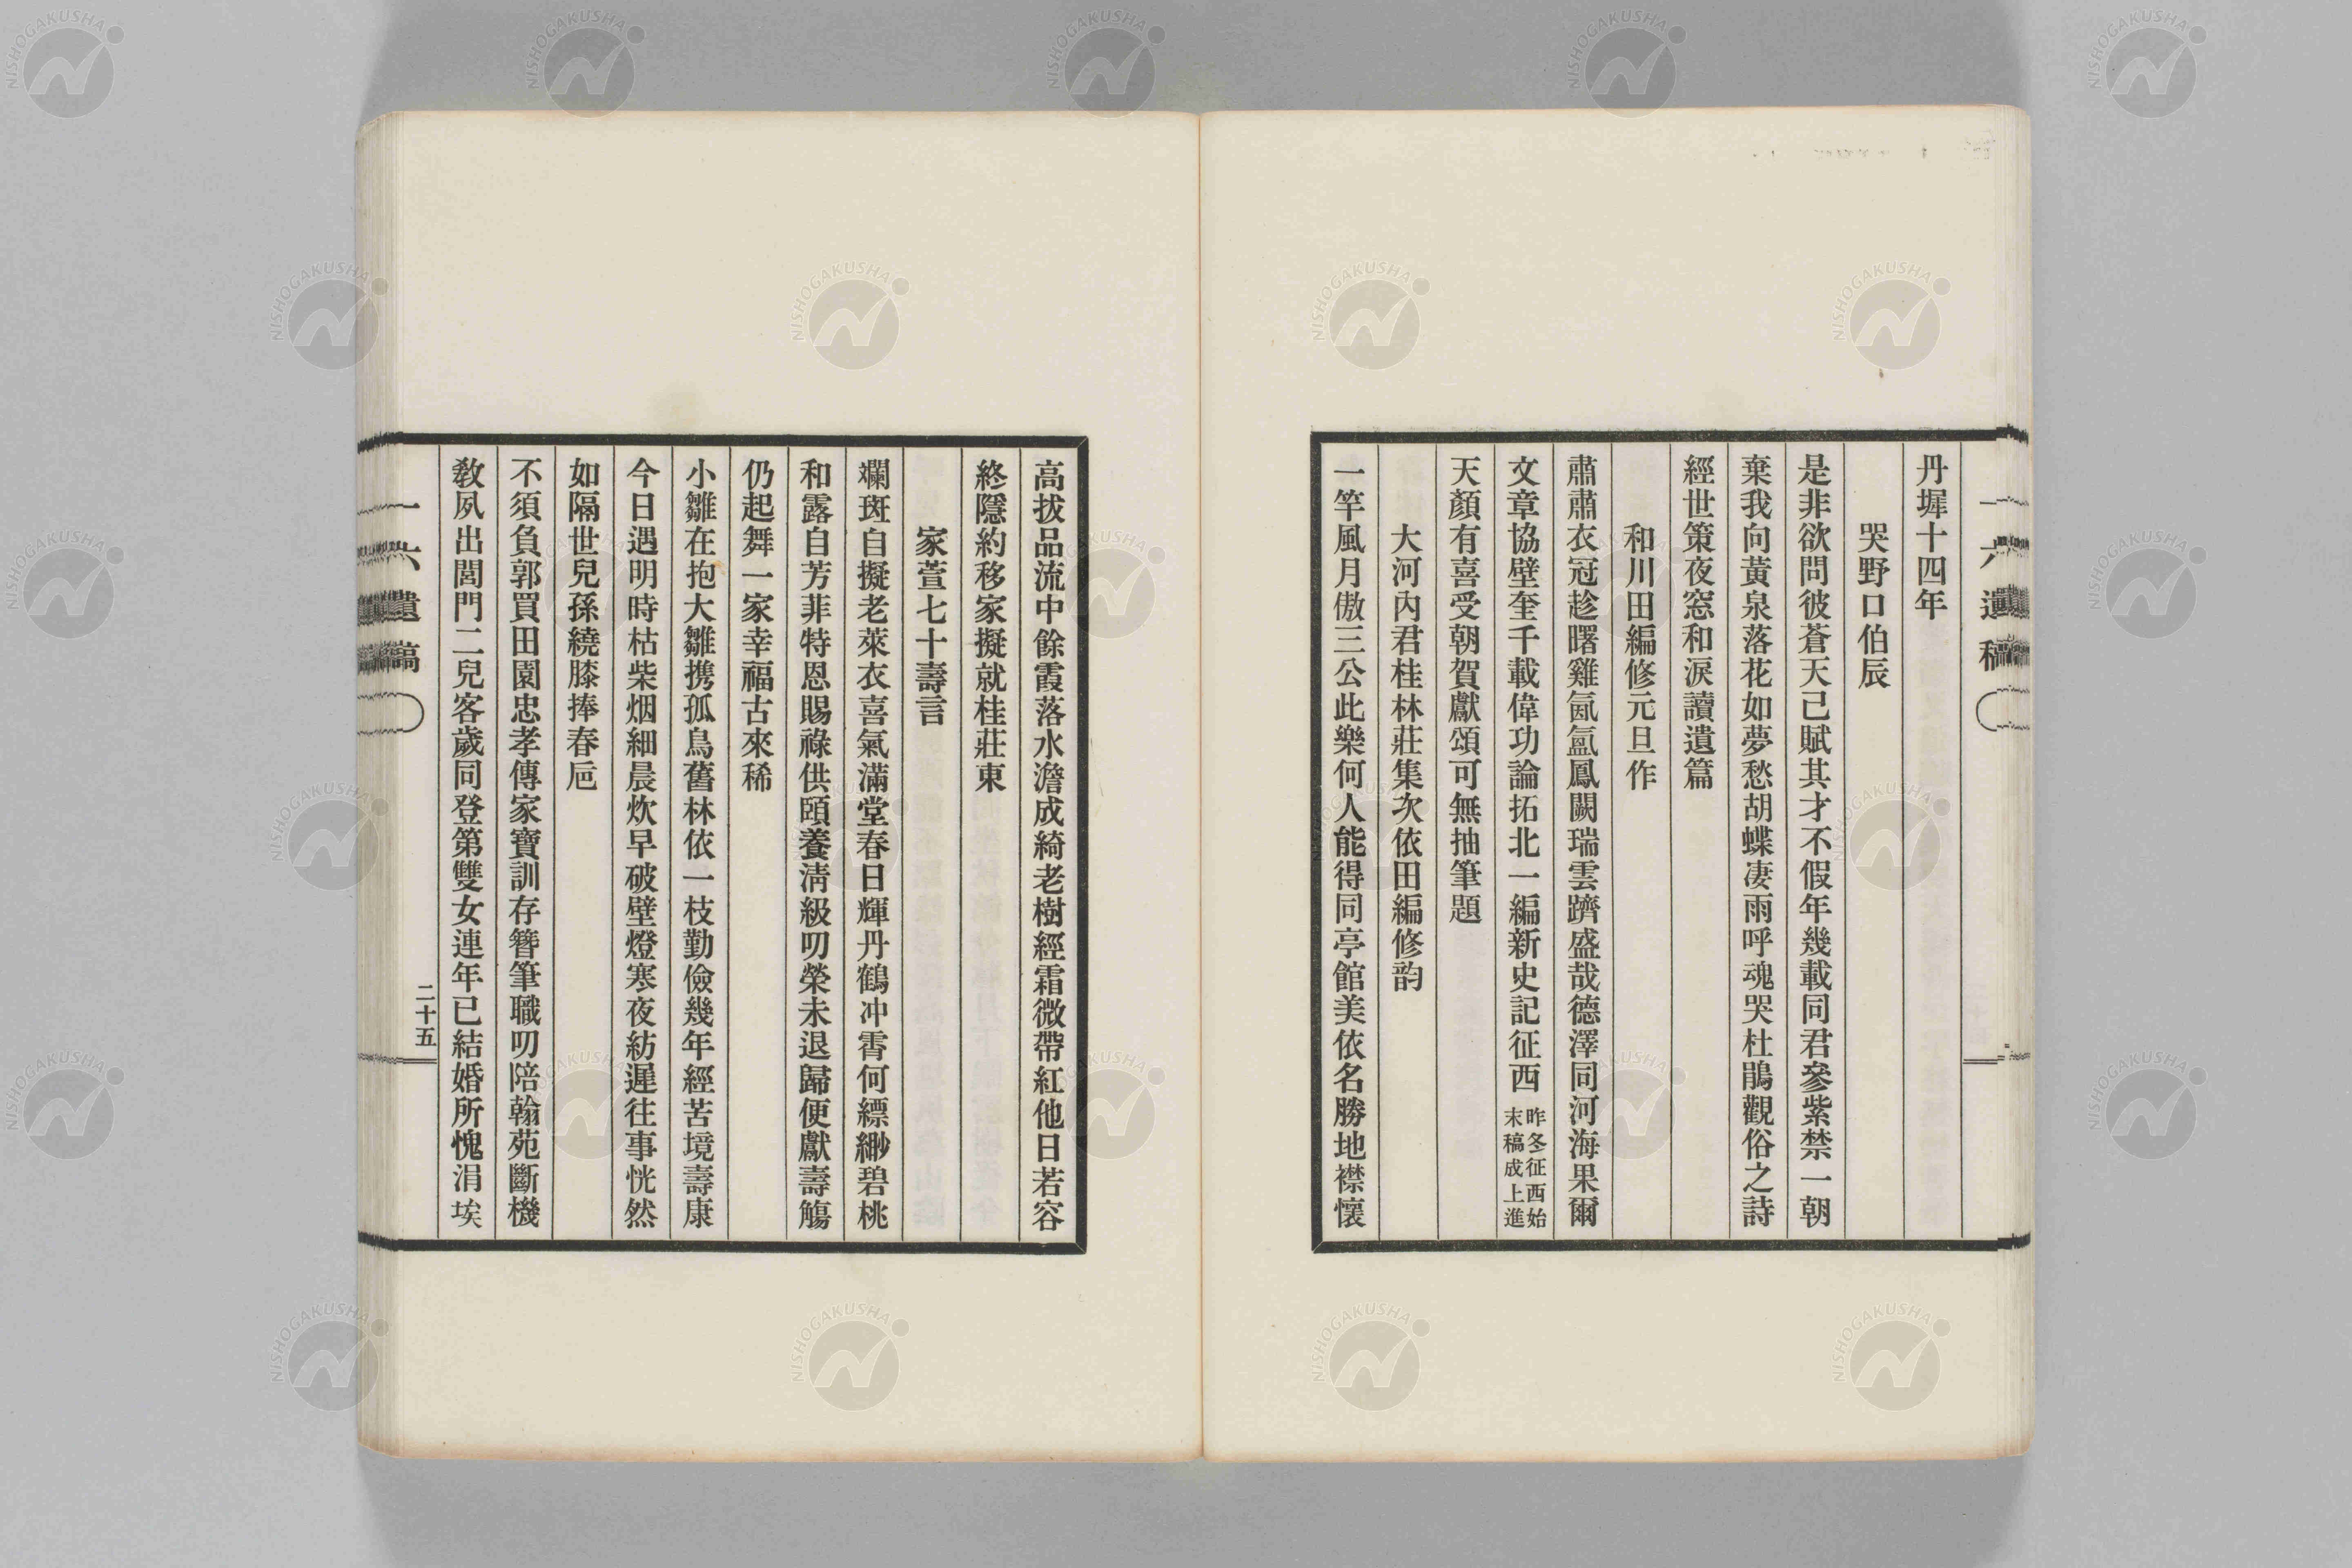 一六遺稿
丹墀十四年
哭野口伯辰
是非欲問彼蒼天已賦其才不假年幾載同君參紫禁一朝
棄我向黃泉落花如夢愁胡蝶凄雨呼魂哭杜鵑觀俗之詩
經世策夜窓和淚讀遺篇
和川田編修元旦作
肅肅衣冠趁曙雞氤氳鳳闕瑞雲躋盛哉德澤同河海果爾
文章協壁奎千載偉功論拓北一編新史記征西昨冬征西始末稿成上進
天顏有喜受朝賀獻頌可無抽筆題
大河內君桂林莊集次依田編修韵
一竿風月傲三公此樂何人能得同亭館美依名勝地襟懷
高拔品流中餘霞落水澹成綺老樹經霜微帶紅他日若容
終隱約移家擬就桂莊東
家萱七十壽言
斕斑自擬老萊衣喜氣滿堂春日輝丹鶴冲霄何縹緲碧桃
和露自芳菲特恩賜祿供頤養淸級叨榮未退歸便獻壽觴
仍起舞一家幸福古來稀
小雛在抱大雛携孤鳥舊林依一枝勤儉幾年經苦境壽康
今日遇明時枯柴烟細晨炊早破壁燈寒夜紡遲往事恍然
如隔世兒孫繞膝捧春卮
不須負郭買田園忠孝傳家寶訓存簪筆職叨陪翰苑斷機
敎夙出閭門二兒客歲同登第雙女連年已結婚所愧涓埃
一六遺稿
二十五
NISHOGAKUSHA